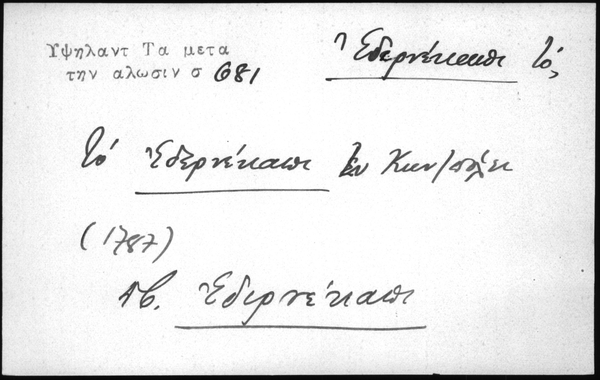 Υψηλαντ Τα μετα
την αλωσιν σ 681
Ἐδερνέκαπι τό,
τό Ἐδερνέκαπι ἐν Κων/πόλει
(1787)
πβ. Ἐδιρνέκαπι